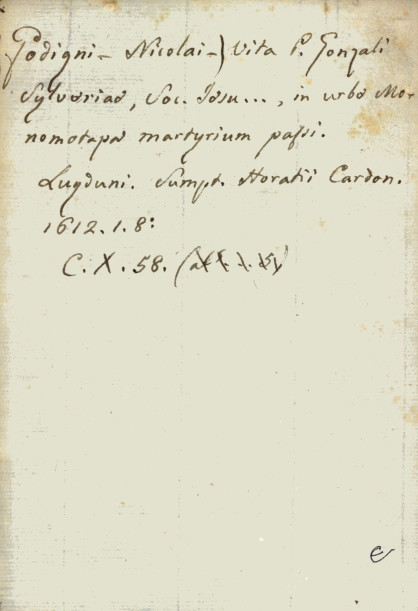 Godigni - Nicolai -) Vita P. Gonzali
Sylveriae, Soc. Jesu..., in urbe Mo-
nomotapa martyrium passi.
Lugduni. Sumpt. Horatii Cardon.
1612. 1. 8:
C. X. 58.
e